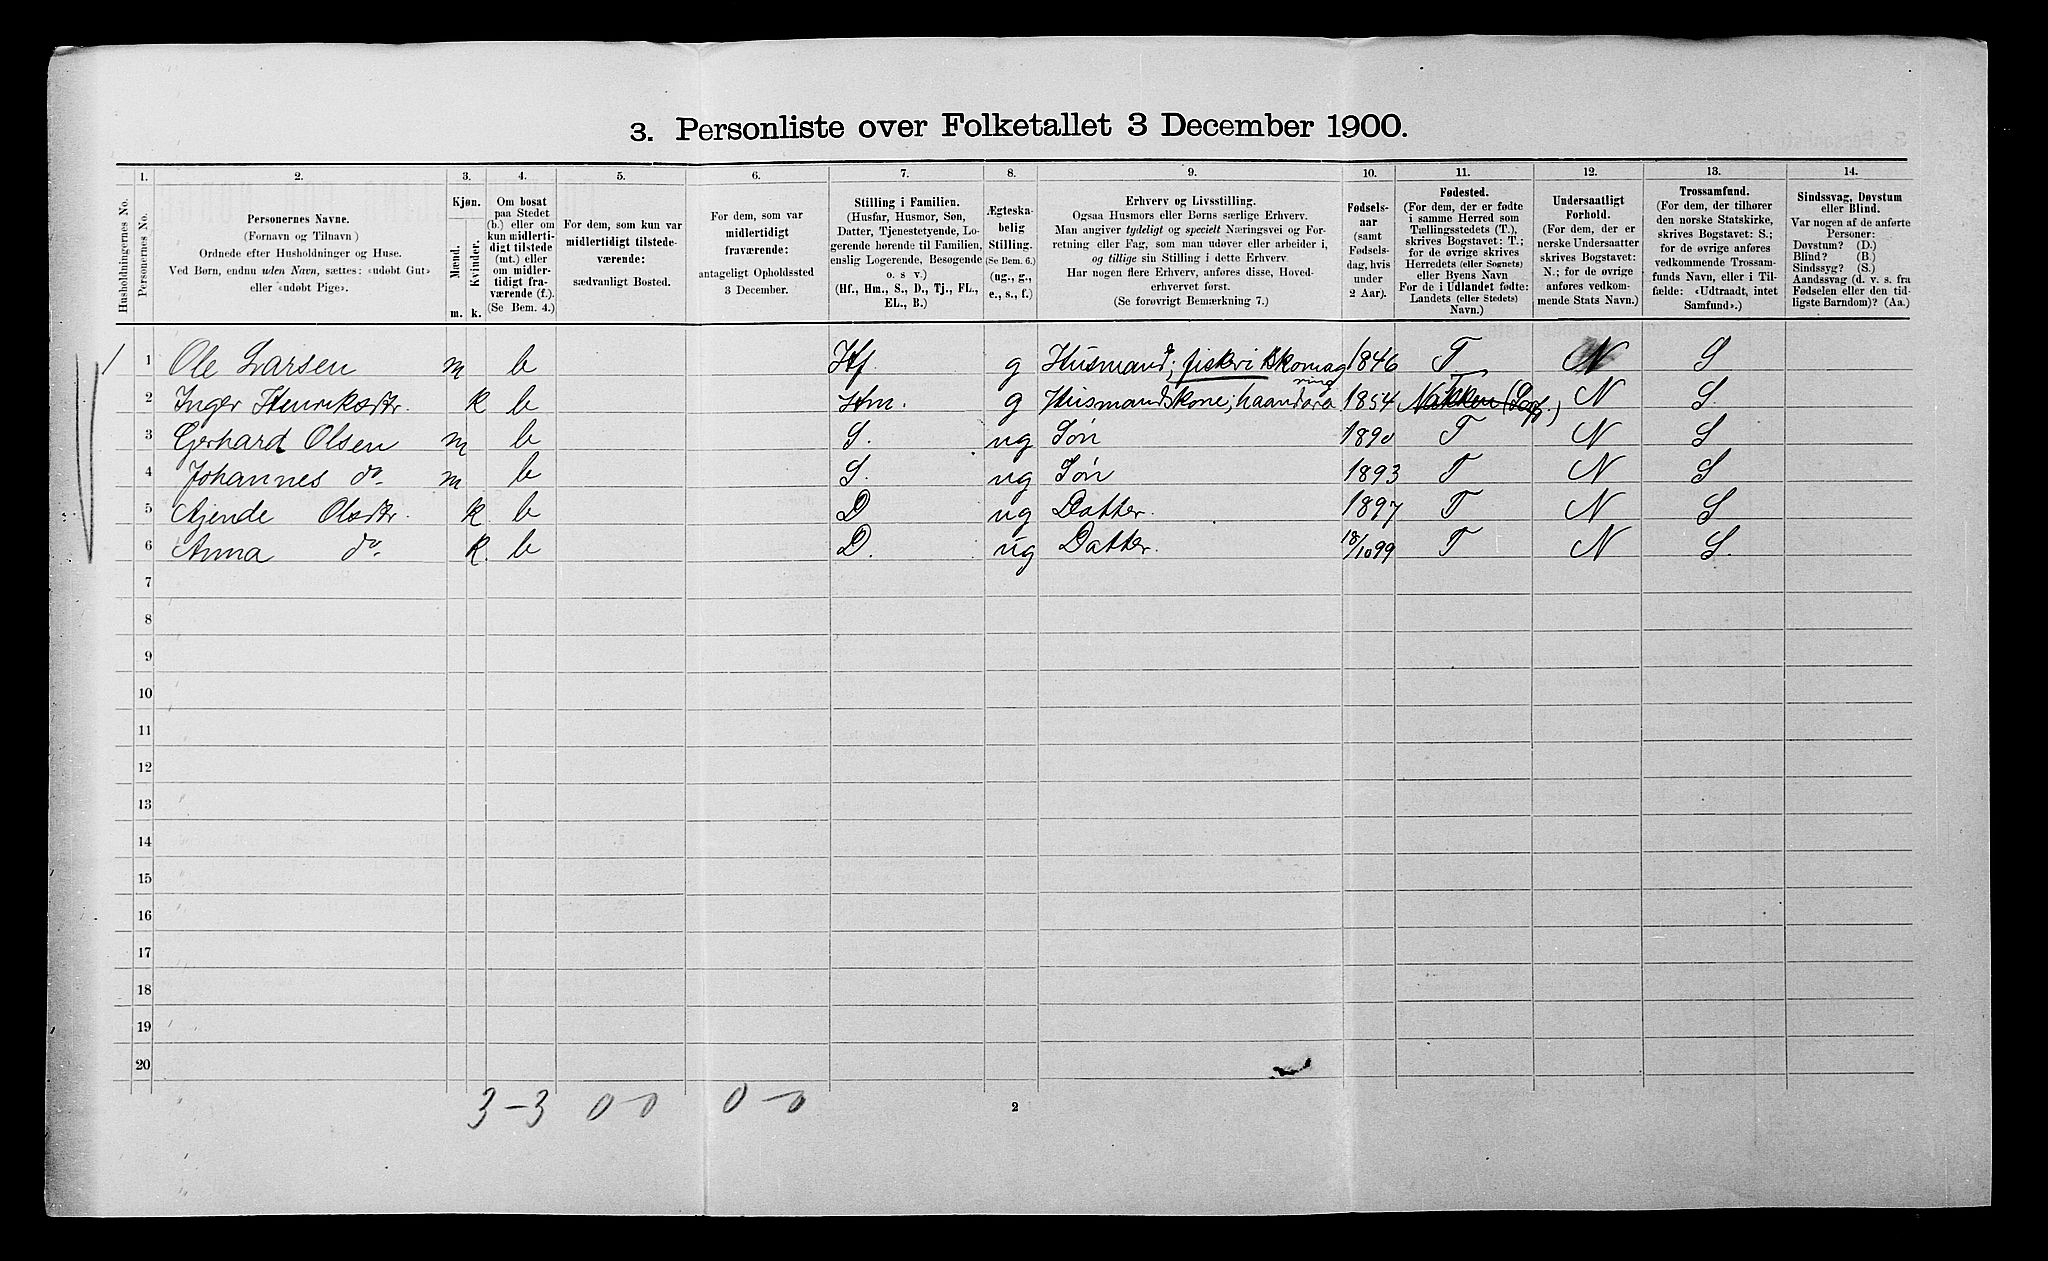 3. Personliste over Folketallet 3 December 1900.
1. 2. 3. 4. 5. 6. 7. 8. 9. 10. 11. 12. 13. 14.
Husholdningernes No.
Personernes No.
Personernes Navne.
(Fornavn og Tilnavn)
Ordnede efter Husholdninger og Huse.
Ved Børn, endnu uden Navn, sættes: «udøbt Gut»
eller «udøbt Pige».
Kjøn.
Mænd.
Kvinder.
m. k.
Om bosat
paa Stedet
(b.) eller om
kun midlerti-
digt tilstede
(mt.) eller
om midler-
tidigt fra-
værende (f.).
(Se Bem. 4.)
For dem, som kun var
midlertidigt tilstede-
værende:
sædvanligt Bosted.
For dem, som var
midlertidigt
fraværende:
antageligt Opholdssted
3 December.
Stilling i Familien.
(Husfar, Husmor, Søn,
Datter, Tjenestetyende, Lo-
gerende hørende til Familien,
enslig Logerende, Besøgende
o. s v.)
(Hf., Hm., S., D., Tj., FL.,
EL., B.)
Ægteska-
belig
Stilling.
(Se Bem. 6.)
(ug., g.,
e., s., f.)
Erhverv og Livsstilling.
Ogsaa Husmors eller Børns særlige Erhverv.
Man angiver tydeligt og specielt Næringsvei og For-
retning eller Fag, som man udøver eller arbeider i,
og tillige sin Stilling i dette Erhverv.
Har nogen flere Erhverv, anføres disse, Hoved-
erhvervet først.
(Se forøvrigt Bemærkning 7.)
Fødsels-
aar
(samt
Fødsels-
dag, hvis
under
2 Aar).
Fødested.
(For dem, der er fødte
i samme Herred som
Tællingsstedets (T.),
skrives Bogstavet: T.;
for de øvrige skrives
Herredets (eller Sognets)
eller Byens Navn
For de i Udlandet fødte:
Landets (eller Stedets)
Navn.)
Undersaatligt
Forhold.
(For dem, der er
norske Undersaatter
skrives Bogstavet:
N.; for de øvrige
anføres vedkom-
mende Stats Navn.)
Trossamfund.
(For dem, der tilhører
den norske Statskirke,
skrives Bogstavet: S.;
for de øvrige anføres
vedkommende Trossam-
funds Navn, eller i Til-
fælde: «Udtraadt, intet
Samfund».)
Sindssvag, Døvstum
eller Blind.
Var nogen af de anførte
Personer:
Døvstum? (D.)
Blind? (B.)
Sindssyg? (S.)
Aandssvag (d. v. s. fra
Fødselen eller den tid-
ligste Barndom)? (Aa.)
1 1 Ole Larsen m b Hf. g Husmand; fiskeri skomag 1846 T N S
2 Inger Henriksdtr. k b Hm. g Husmandskone; haandare ring 1854 T Nakken N S
3 Gerhard Olsen m b S. ug Søn 1890 T N S
4 Johannes do. m b S. ug Søn 1893 T N S
5 Ajende Olsdtr. k. b D ug Datter. 1897 T N S
6 Anna do. k. b D. ug Datter. 18/10 99 T N S.
7
8
9
10
11
12
13
14
15
16
17
18
19
20
3-3 0-0 0-0
2